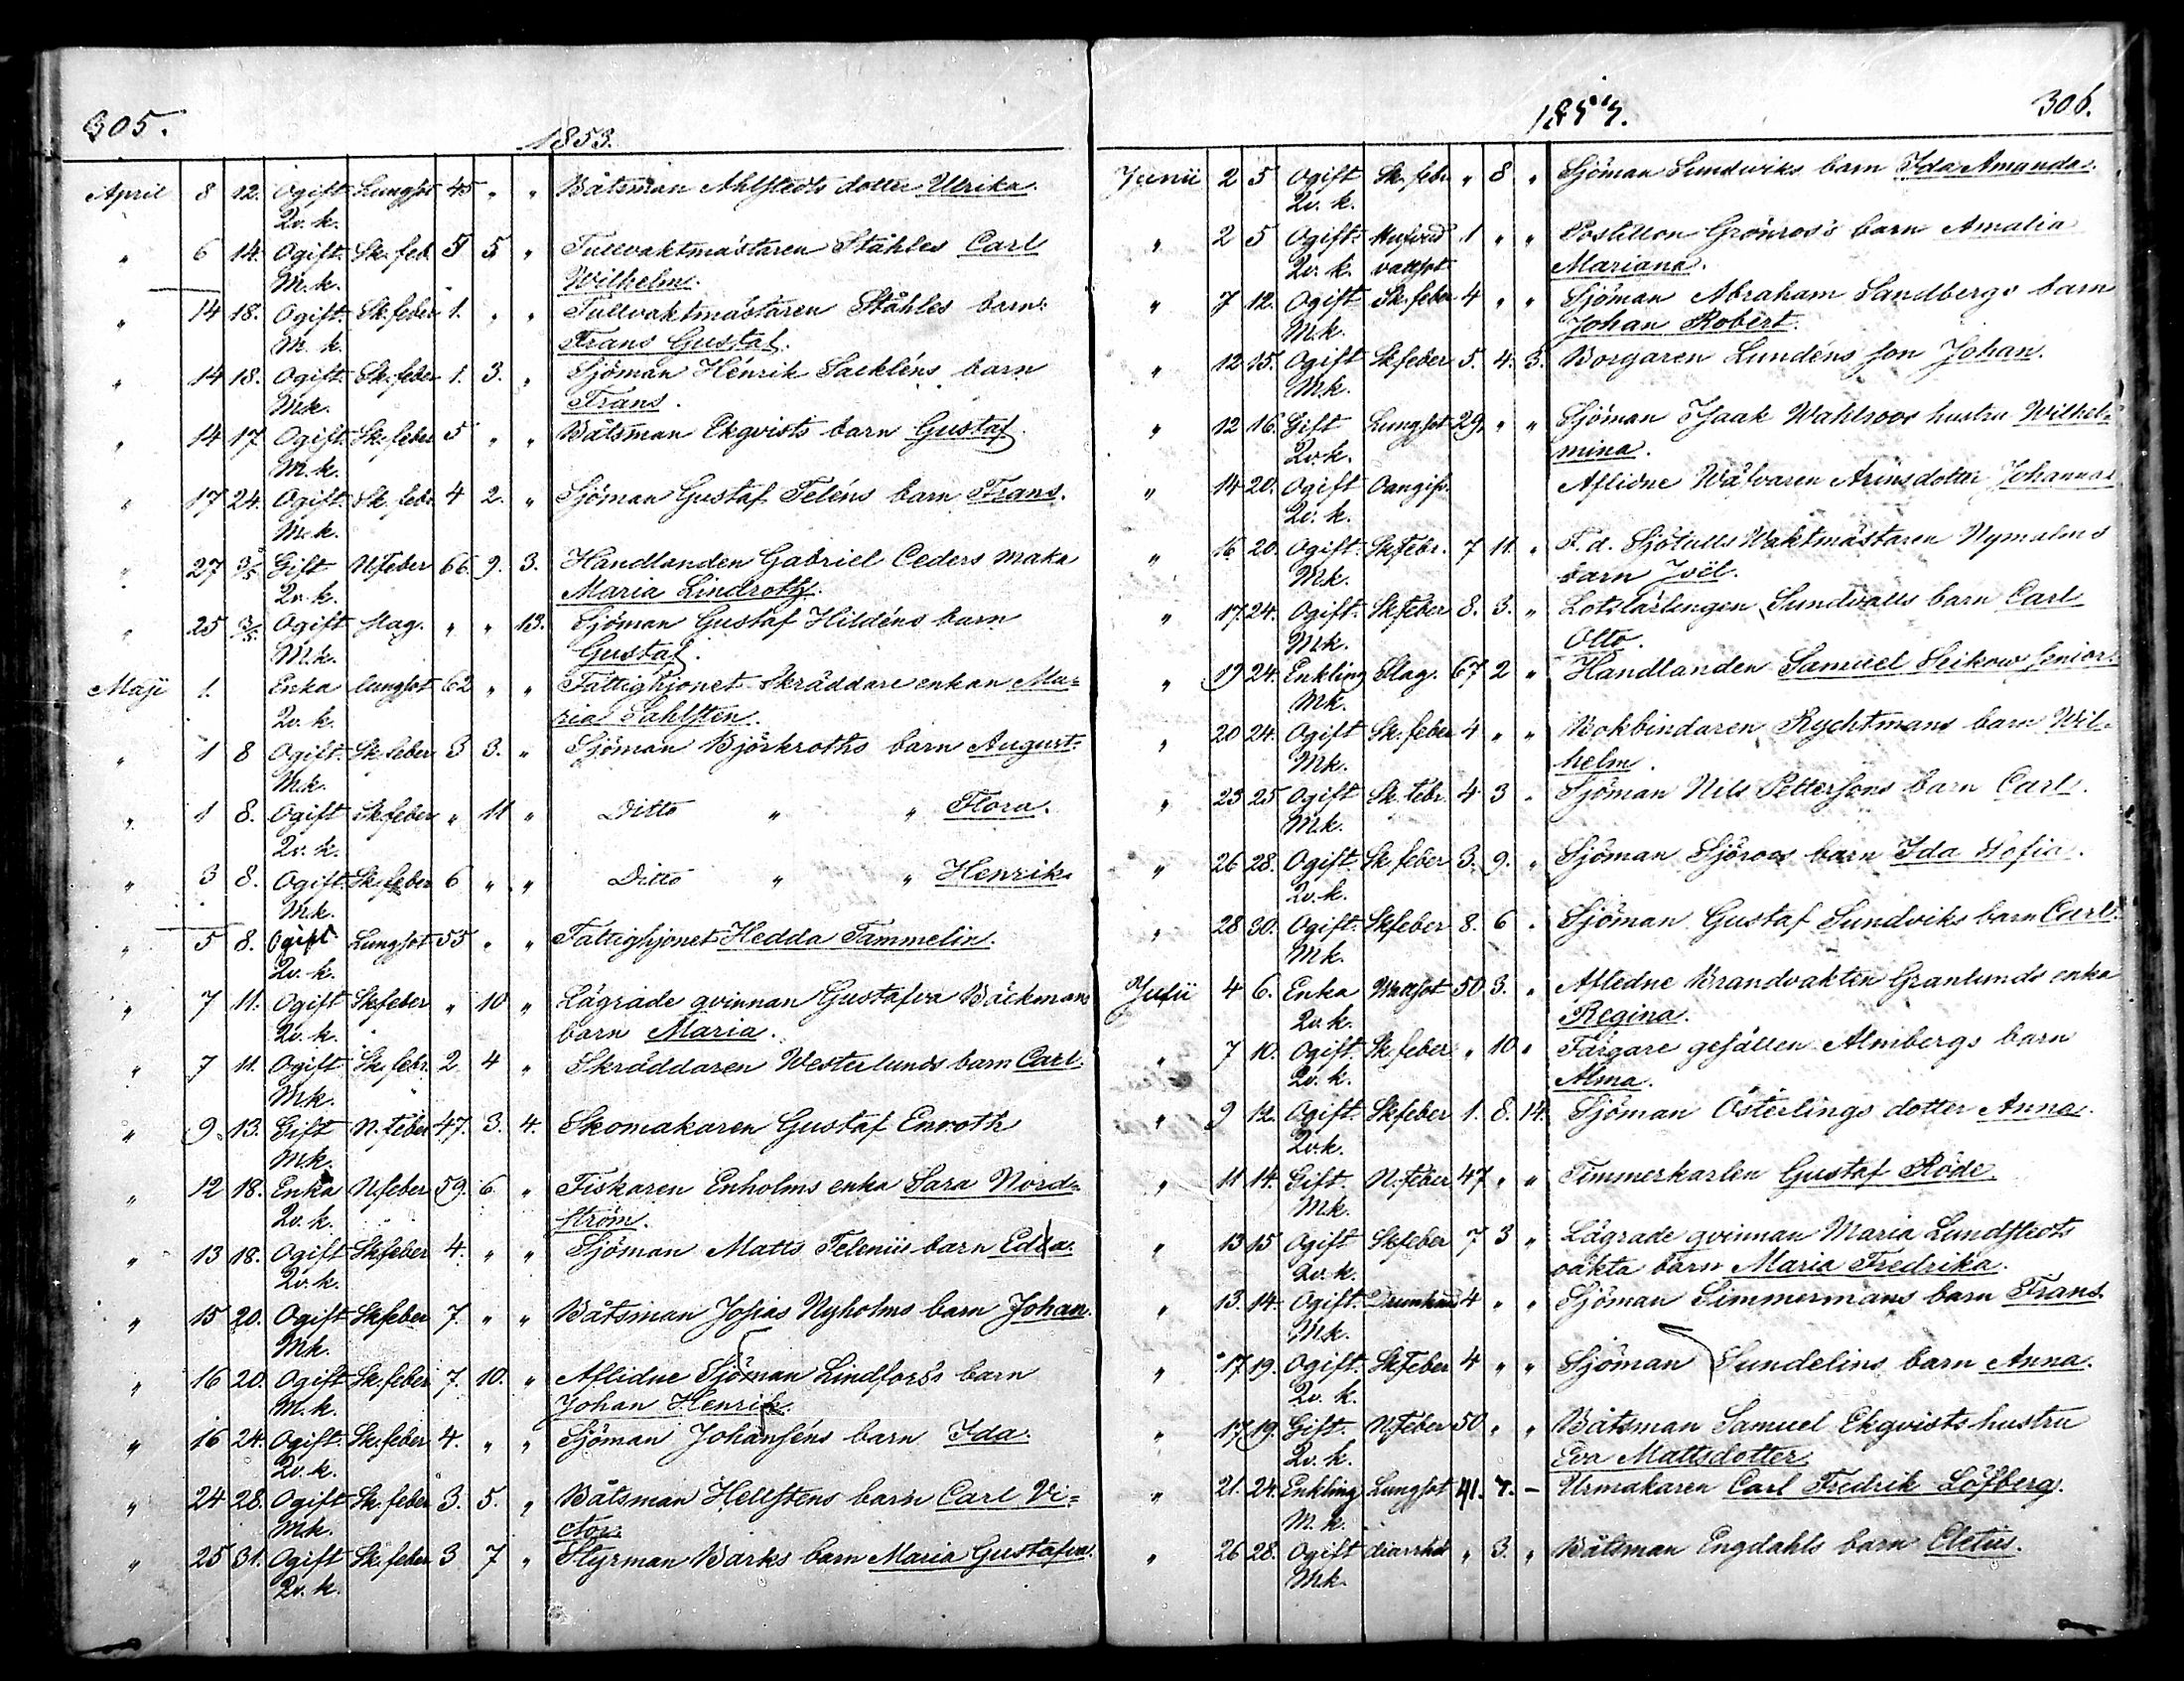 305.
1853.
April 8 12. Ogift Lungsot 45 " " Båtsman Ahlstedts dotter Ulrika.
Qv. k.
" 6 14. Ogift. Sk. feb. 5 5 " Tullvaktmästaren Ståhles Carl
M. k. Wilhelm.
" 14 18. Ogift. Sk. feber 1. " " Tullvaktmästaren Ståhles barn
M. k. Frans Gustaf.
" 14 18. Ogift. Sk. feber 1. 3. " Sjöman Henrik Sackléns barn
M.k. Frans.
" 14 17 Ogift. Sk. feber 5 " " Båtsman Ekqvists barn Gustaf.
M. k.
" 17 24. Ogift. Sk. febr. 4 2. " Sjöman Gustaf Teléns barn Frans.
M. k.
" 27 3/5 Gift N.feber 66. 9. 3. Handlanden Gabriel Ceders maka
Qv. k. Maria Lindroth.
" 25 3/5 Ogift Slag. " " 13. Sjöman Gustaf Hildéns barn
M.k. Gustaf.
Maji 1. Enka lungsot 62 " " Fattighjonet Skräddare enkan Ma=
Qv. k. ria Sahlsten.
" 1 8 Ogift. Sk. feber 3 3. " Sjöman Björkroths barn August.
M.k.
" 1 8. Ogift Sk feber " 11 " Ditto " " Flora.
Qv. k.
" 3 8. Ogift. Sk. feber 6 " " Ditto " " Henrik.
M.k.
" 5 8. Ogift Lungsot 55 " " Fattighjonet Hedda Tammelin.
Qv. k.
" 7 11. Ogift Sk feber " 10 " Lägrade qvinnan Gustafva Bäckmans
Qv. k. barn Maria.
" 7 11. Ogift Sk. febr. 2 4 " Skräddaren Westerlunds barn Carl.
M.k.
" 9. 13. Gift N. feber 47. 3. 4. Skomakaren Gustaf Enroth
M.k.
" 12 18. Enka N.feber 59. 6 " Fiskaren Enholms enka Sara Nord=
Qv. k. ström.
" 13 18. Ogift Sk feber 4. " " Sjöman Matts Telenii barn Edla.
Qv. k.
" 15 20. Ogift Sk feber 7. " " Båtsman Josias Nyholms barn Johan.
M.k.
" 16 20. Ogift Sk. feber 7. 10. " Aflidne Sjöman Lindfors's barn
M. k. Johan Henrik.
" 16 24. Ogift. Sk. feber 4. " " Sjöman Johanséns barn Ida.
Qv. k.
" 24 28. Ogift Sk. feber 3. 5. " Båtsman Hellstens barn Carl Vi=
M.k. ctor.
" 25 31. Ogift Sk. feber 3 7 " Styrman Barks barn Maria Gustafva.
Qv. k.
306.
1853.
Junii 2 5 Ogift Sk. febr. " 8 " Sjöman Sundviks barn Ida Amanda.
Qv. k.
" 2 5 Ogift. Hufvud 1 " " Postillon Grönros's barn Amalia
Qv. k. vattsot Mariana.
" 7 12. Ogift Sk. feber 4 " " Sjöman Abraham Sandbergs barn
M.k. Johan Robert.
" 12 15. Ogift Sk feber 5. 4. 3. Borgaren Lundéns son Johan.
M.k.
" 12 16. Gift Lungsot 29. " " Sjöman Isaak Wahlroos hustru Wilhel=
Qv.k. mina.
" 14 20. Ogift Oangifv. Aflidne dotter Johanna
Qv. k.
" 16 20. Ogift. Sk febr. 7 11. " F. d. Sjötulls Waktmästaren Nymalms
M.k. barn Joël.
" 17. 24. Ogift. Sk feber 8. 3. " Lotslärlingen Sundvalls barn Carl
M.k. Otto.
" 19 24. Enkling Slag. 67 2 " Handlanden Samuel Seikow Senior.
M.k.
" 20 24. Ogift Sk. feber 4 " " Bokbindaren Rychtmans barn Wil=
M.k. helm.
" 23 25. Ogift Sk. febr. 4 3 " Sjöman Nils Pettersons barn Carl.
M.k.
" 26 28. Ogift. Sk feber 3. 9. " Sjöman Sjöroos barn Ida Sofia.
Qv. k.
" 28 30. Ogift. Sk feber 8. 6 " Sjöman Gustaf Sundviks barn Carl.
M.k.
Julii 4 6. Enka Wattsot 50 3. " Afledne Brandvakten Granlunds enka
Qv. k. Regina.
" 7 10. Ogift. Sk. feber " 10 " Färgare gesällen Almbergs barn
Qv. k. Alma.
" 9 12. Ogift. Sk feber 1. 8. 14. Sjöman Österlings dotter Anna.
Qv.k.
" 11 14. Gift. N. feber 47 " " Timmerkarlen Gustaf Röde.
M.k.
" 13 15 Ogift Sk feber 7 3 " Lägrade qvinnan Maria Lundstedts
Qv. k. oäkta barn Maria Fredrika.
" 13. 14 Ogift. 4 " " Sjöman Simmermans barn Frans.
M.k.
" 17 19. Ogift. Sk feber 4 " " Sjöman Sundelins barn Anna.
Qv. k.
" 17 19. Gift. N.feber 50 " " Båtsman Samuel Ekqvists hustru
Qv. k. Eva Mattsdotter.
" 21. 24. Enkling Lungsot 41. 7. - Urmakaren Carl Fredrik Löfberg.
M. k.
" 26 28. Ogift diarrhé " 3. " Båtsman Engdahls barn Cletus.
M.k.